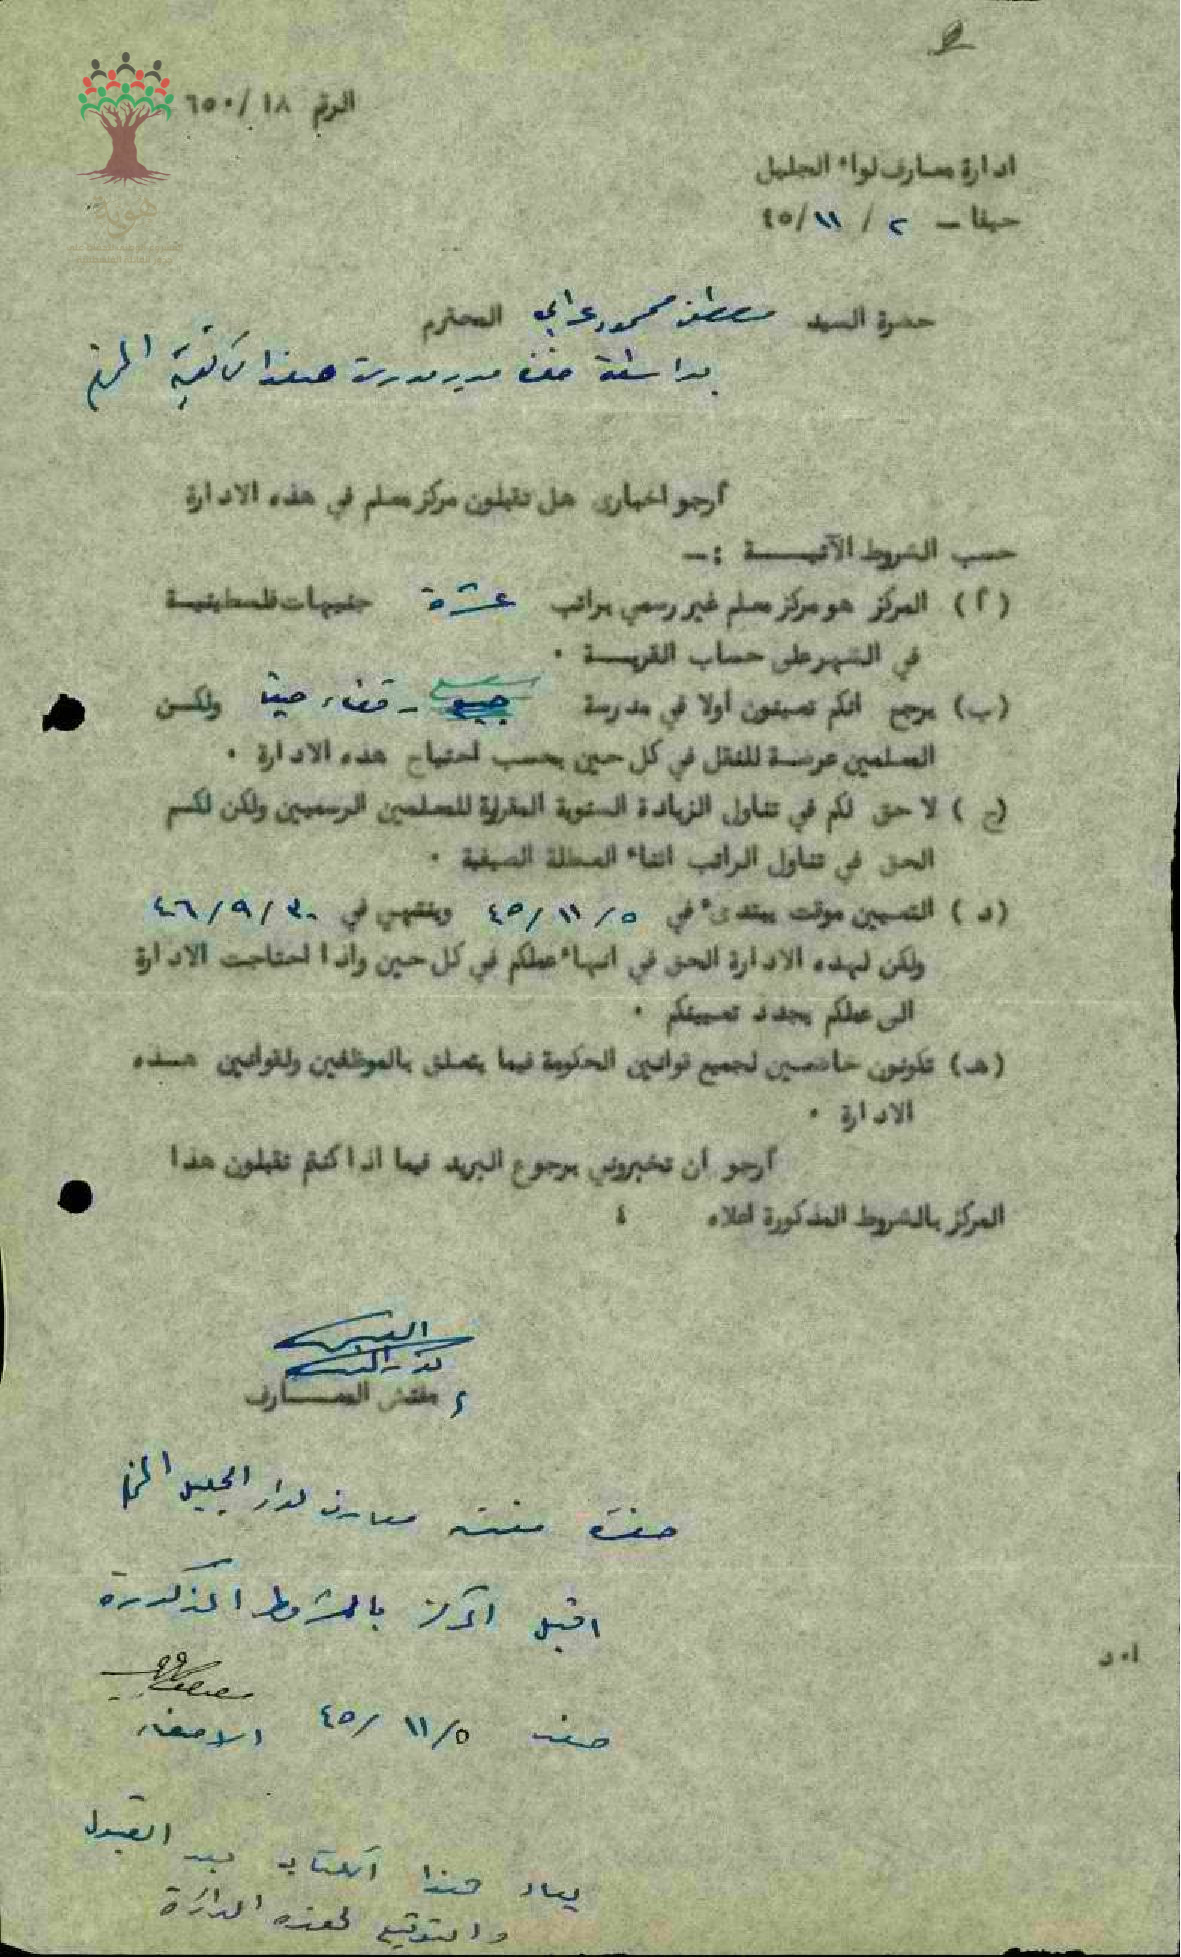 الرقم ٦٥٠/١٨
ادارة معارف لواء الجليل
حيفا - ٢ / ١١/ ٤٥
حضرة السيد مصطفى محمود عرابي المحترم
بواسطة حضرة مدير مدرسة صفد الثانوية المحترم
أرجو اخباري هل تقبلون مركز معلم في هذه الادارة
حسب الشروط الآتيــــة :-
(أ) المركز هو مركز معلم غير رسمي براتب عشرة جنيهات فلسطينية
في الشهر على حساب القريــة ٠
(ب) يرجح انكم تعينون أولا في مدرسة جبع - قضاء حيفا ولكـن
المعلمين عرضة للنقل في كل حين بحسب احتياج هذه الادارة ٠
(ج) لا حق لكم في تناول الزيادة السنوية المقررة للمعلمين الرسميين ولكن لكـم
الحق في تناول الراتب اثناء العطلة الصيفية ٠
(د) التعيين موقت يبتدىء في ٥/ ١١/ ٤٥ وينتهي في ٣٠/ ٩/ ٤٦
ولكن لهذه الادارة الحق في انهاء عملكم في كل حين واذا احتاجت الادارة
الى عملكم يجدد تعيينكم ٠
(هـ) تكونون خاضعين لجميع قوانين الحكومة فيما يتعلق بالموظفين ولقوانين هـذه
الادارة ٠
أرجو أن تخبروني برجوع البريد فيما اذا كنتم تقبلون هذا
المركز بالشروط المذكورة اعلاه ٤
مفتش المعــارف
حضرة مفتش معارف لواء الجليل المحترم
اقبل المركز بالشروط المذكورة
صفد ٥/ ١١/ ٤٥ الامضاء
ا٠د
يعاد هذا الكتاب بعد القبول
والتوقيع لهذه الدائرة